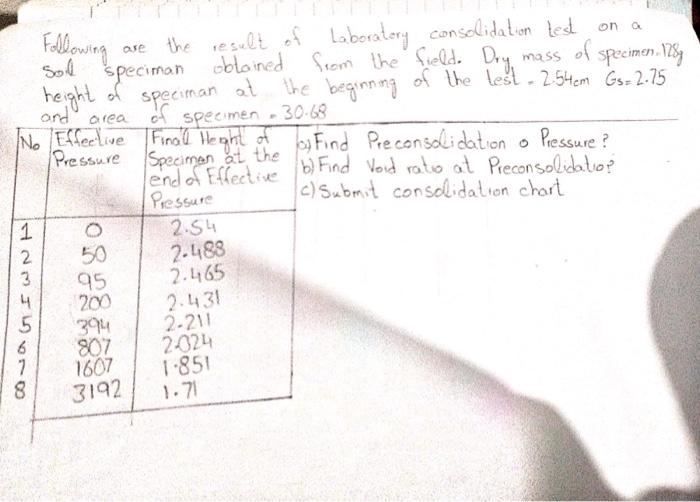 Following are the result of Laboratory consolidation test on a
Soil speciman obtained from the field. Dry mass of specimen = 128g
height of speciman at the beginning of the test = 2.54cm Gs = 2.75
and area of specimen = 30.68
No Effective Pressure
Final Height of Specimen at the end of Effective Pressure
a) Find Preconsolidation o Pressure?
b) Find Void ratio at Preconsolidatio?
c) Submit consolidation chart
1 0 2.54
2 50 2.488
3 95 2.465
4 200 2.431
5 394 2.211
6 807 2.024
7 1607 1.851
8 3192 1.71